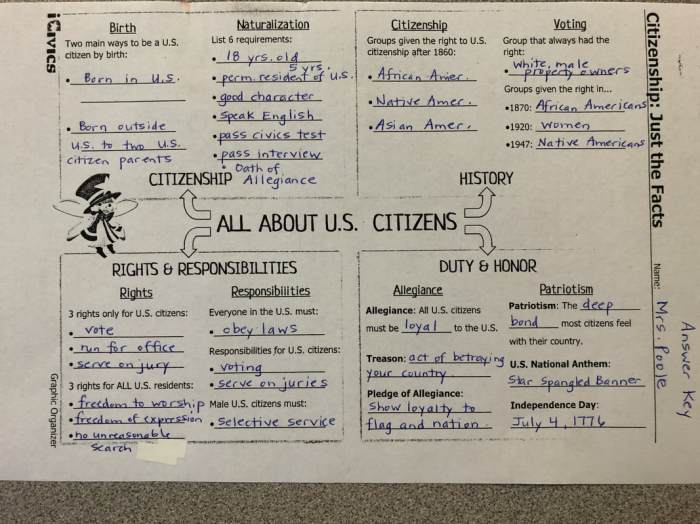 iCivics
Citizenship: Just the Facts
Name: Mrs. Poole
Answer Key
Birth
Two main ways to be a U.S.
citizen by birth:
• Born in U.S.
• Born outside
U.S. to two U.S.
citizen parents
Naturalization
List 6 requirements:
• 18 yrs. old
5 yrs.
• perm. resident of U.S.
• good character
• Speak English
• pass civics test
• pass interview
• Oath of
Allegiance
CITIZENSHIP
Citizenship
Groups given the right to U.S.
citizenship after 1860:
• African Amer.
• Native Amer.
• Asian Amer.
Voting
Group that always had the
right:
white, male
property owners
Groups given the right in...
•1870: African Americans
•1920: Women
•1947: Native Americans
HISTORY
ALL ABOUT U.S. CITIZENS
RIGHTS & RESPONSIBILITIES
Rights
3 rights only for U.S. citizens:
• vote
• run for office
• serve on jury
3 rights for ALL U.S. residents:
• freedom to worship
• freedom of expression
• no unreasonable
search
Responsibilities
Everyone in the U.S. must:
• obey laws
Responsibilities for U.S. citizens:
• voting
• serve on juries
Male U.S. citizens must:
• selective service
DUTY & HONOR
Allegiance
Allegiance: All U.S. citizens
must be loyal to the U.S.
Treason: act of betraying
your country
Pledge of Allegiance:
Show loyalty to
flag and nation.
Patriotism
Patriotism: The deep
bond most citizens feel
with their country.
U.S. National Anthem:
Star Spangled Banner
Independence Day:
July 4, 1776
Graphic Organizer